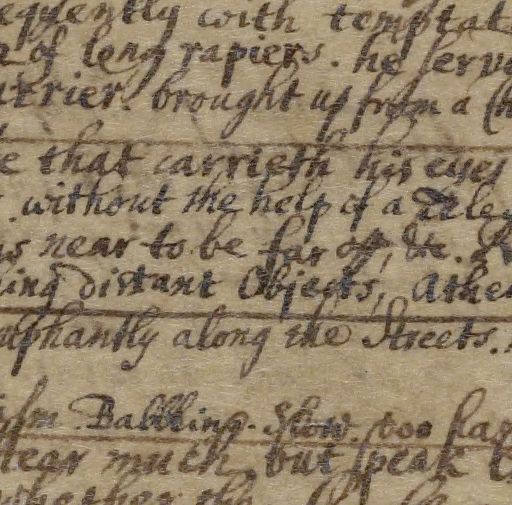 equently with temptat
of long rapiers. he serv
arrier. brought up from a
e that carrieth his eyes
without the help of a
s near to be far off, &c.
ling distant Objects, Athe
mphantly along the Streets.
Babbling. Slow. too
hear much, but speak
whether the